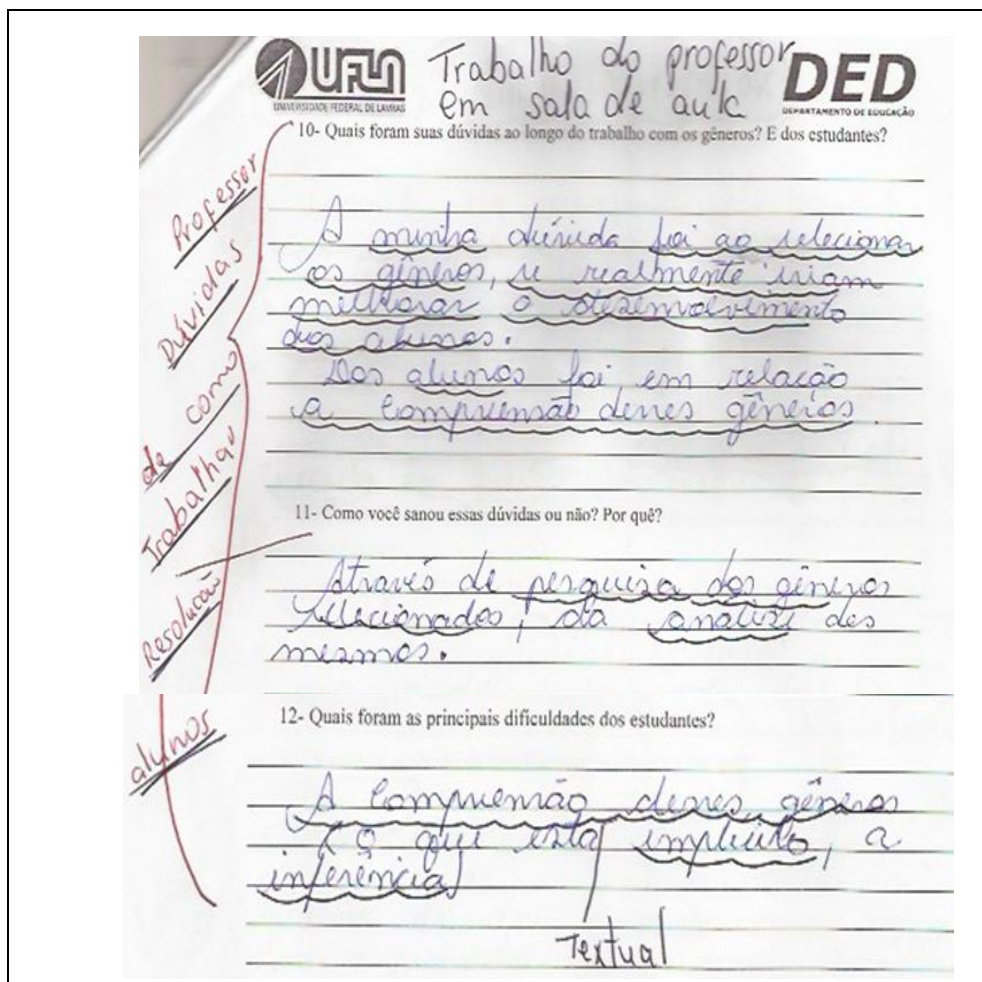 UFLA
UNIVERSIDADE FEDERAL DE LAVRAS
Trabalho do professor
em sala de aula
DED
DEPARTAMENTO DE EDUCAÇÃO
10- Quais foram suas dúvidas ao longo do trabalho com os gêneros? E dos estudantes?
A minha dúvida foi ao selecionar
os gêneros, se realmente iriam
melhorar o desenvolvimento
dos alunos.
Dos alunos foi em relação
a compreensão desses gêneros
Professor
Dúvidas
de como
Trabalhar
Resolução
11- Como você sanou essas dúvidas ou não? Por quê?
Através de pesquisa dos gêneros
selecionados, da análise dos
mesmos.
alunos
12- Quais foram as principais dificuldades dos estudantes?
A compreensão desses gêneros
(o que está implícito, a
inferência)
Textual